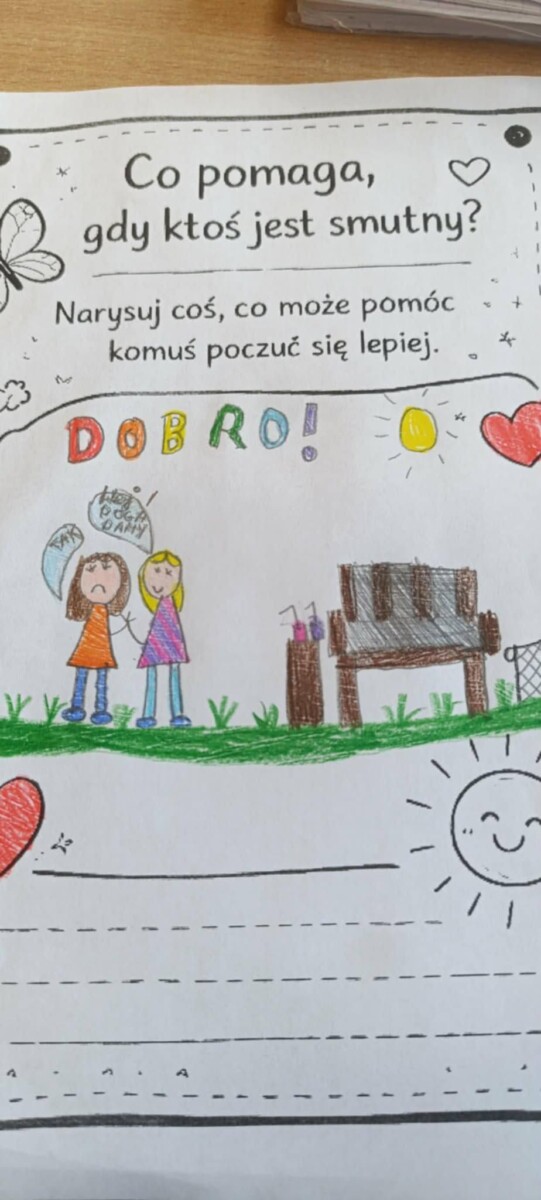 Co pomaga,
gdy ktoś jest smutny?
Narysuj coś, co może pomóc
komuś poczuć się lepiej.
DOBRO!
POGA
DAMY
TAK